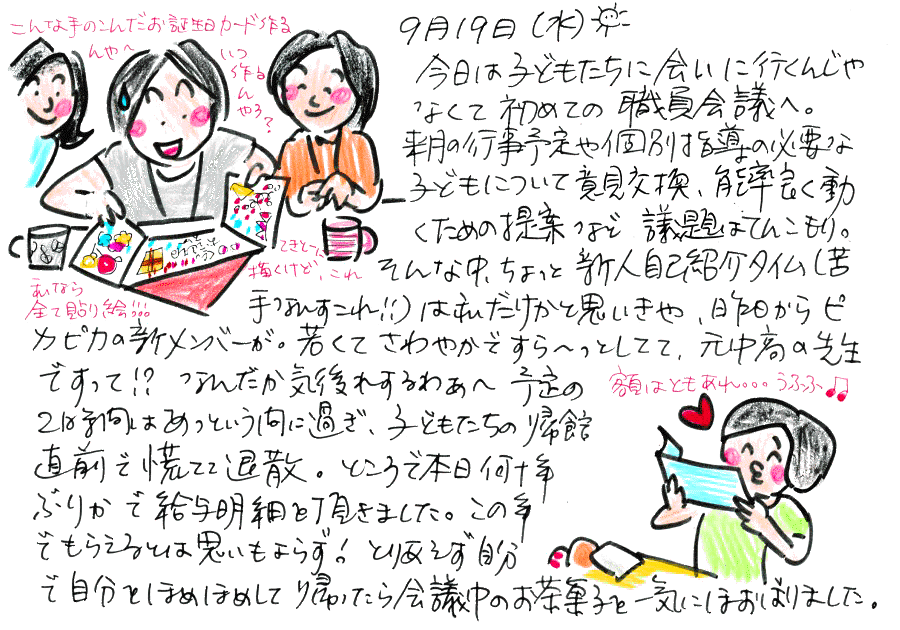 こんな手のこんだお誕生日カード作る
んや〜
いつ
作る
んやろ?
てきとーに
描くけど、これ
私なら
全て貼り絵!!!
9月19日(水)
今日は子どもたちに会いに行くんじゃ
なくて初めての職員会議へ。
来月の行事予定や個別指導の必要な
子どもについて意見交換、能率良く動
くための提案など議題はてんこもり。
そんな中、ちょっと新人自己紹介タイム(苦
手なんすこれ!!)は私だけかと思いきや、昨日からピ
カピカの新メンバーが。若くてさわやかですら〜っとしてて、元中高の先生
ですって!? なんだか気後れするわぁ〜 予定の
2時間はあっという間に過ぎ、子どもたちの帰館
直前で慌てて退散。ところで本日何十年
ぶりかで給与明細を頂きました。この年
でもらえるとは思いもよらず! とりあえず自分
で自分をほめほめして帰ったら会議中のお茶菓子を一気にほおばりました。
額はともあれ...うふふ♫